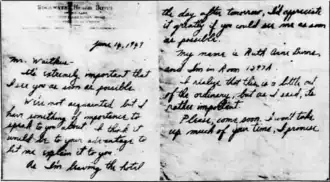 June 14, 1949
Mr. Waithus:
It's extremely important that
I see you as soon as possible.
We're not acquainted but I
have something of importance to
speak to you about. I think it
would be to your advantage to
let me explain it to you.
As I'm leaving the hotel
the day after tomorrow, I'd appreciate
it greatly if you could see me as soon
as possible.
My name is Ruth Anne Burns,
and I'm in Room 1297A.
I realize that this is a little out
of the ordinary, but as I said, its
rather important.
Please, come soon. I won't take
up much of your time, I promise.